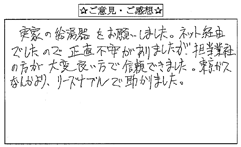 ☆ご意見・ご感想☆
実家の給湯器をお願いしました。ネット経由
でしたので正直不安がありましたが、担当業社
の方が大変良い方で信頼できました。東京ガス
なんかより、リーズナブルで助かりました。